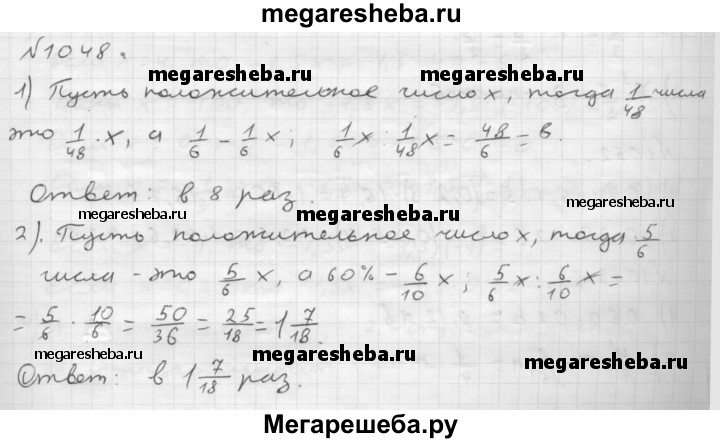 megaresheba.ru
№1048.
megaresheba.ru megaresheba.ru
1) Пусть положительное число x, тогда 1/48 числа
это 1/48 · x, а 1/6 - 1/6 x; 1/6 x : 1/48 x = 48/6 = 8.
Ответ: в 8 раз.
megaresheba.ru megaresheba.ru megaresheba.ru
2). Пусть положительное число x, тогда 5/6
числа - это 5/6 x, а 60% - 6/10 x; 5/6 x : 6/10 x =
= 5/6 · 10/6 = 50/36 = 25/18 = 1 7/18.
megaresheba.ru megaresheba.ru megaresheba.ru
Ответ: в 1 7/18 раз.
Мегарешеба.ру